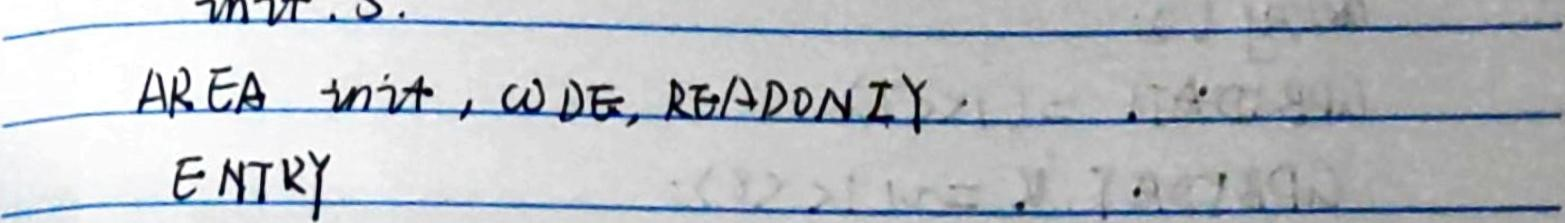 init.s.
AREA init, CODE, READONIY
ENTRY